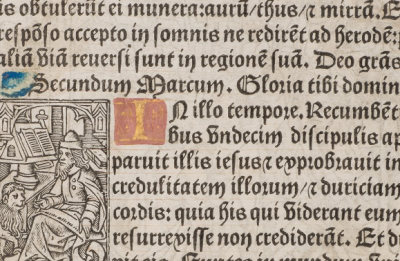 is obtulerūt ei munera: aurū/thus/⁊ mirrā. E
respōso accepto in somnis ne redirēt ad herodē: p
aliā viā reuersi sunt in regionē suā. Deo grās
Secundum Marcum. Gloria tibi domin
IN illo tempore. Recumbēt
bus vndecim discipulis ap
paruit illis iesus ⁊ exprobrauit in
credulitatem illorum/⁊ duriciam
cordis: quia his qui viderant eum
resurrexisse non crediderāt. Et di